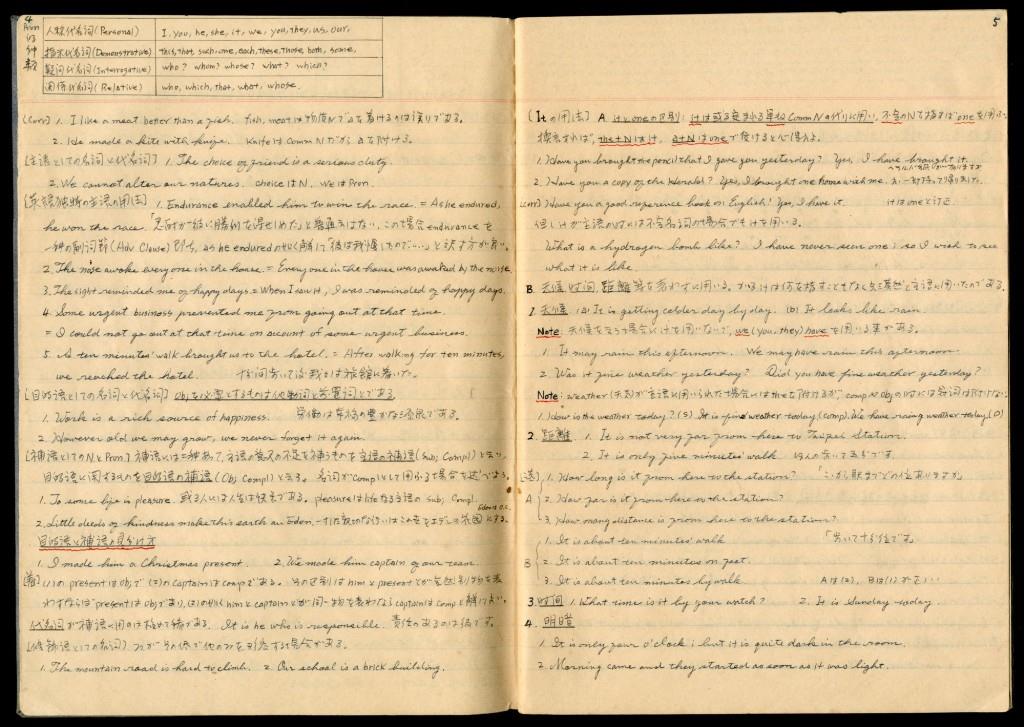 4
Pron
の
種
類
人称代名詞 (Personal) I, you, he, she, it, we, you, they, us, our,
指示代名詞 (Demonstrative) this, that, such, one, each, these, those, both, some,
疑问代名詞 (Interrogative) who? whom? whose? what? which?
関係代名詞 (Relative) who, which, that, what, whose.
(Corr) 1. I like a meat better than a fish. fish, meat は物质Nで a を着けるのは誤りである。
2. He made a kite with knife. Knife は Comm N だから a を附ける。
[主语としての名词と代名詞] 1. The choice of friend is a serious duty.
2. We cannot alter our natures. choice は N, We は Pron.
1. Endurance enabled him to win the race. = As he endured,
he won the race.
(Adv Clause) 即ち, as he endured
2. The noise awoke everyone in the house. = Everyone in the house was awaked by the noise.
3. The sight reminded me of happy days. = When I saw it, I was reminded of happy days.
4. Some urgent business prevented me from going out at that time.
= I could not go out at that time on account of some urgent business.
5. A ten minutes' walk brought us to the hotel. = After walking for ten minutes,
we reached the hotel. 十分间歩いて後我々は旅館に着いた。
[目的语としての名词と代名词] Obj を必要とするものは他動词と前置词とである。
1. Work is a rich source of happiness. 労働は幸福の豊かな源泉である。
2. However old we may grow, we never forget it again.
[補语としてのNとPron] 補语には二种あって, 主语の意义の不足を補うものを主语の補语 (Sub; Compl) と云い,
目的语に関するものを目的语の補语 (Obj Compl) と云う。
1. To some life is pleasure. 或る人には人生は快楽である。 pleasure は life なる主语の Sub; Compl.
2. Little deeds of kindness make this earth an Eden.
目的语と補语の見分け方
1. I made him a Christmas present. 2. We made him captain of our team.
(1) の present は Obj で (2) の captain は Comp である。 その区别は him と present とが
present は Obj であり, him と captain とが同一物を表わすなら captain は Comp と解してよい。
代名词が補语に用うのは極めて稀である。 It is he who is responsible. 責任のあるのは彼です。
[修飾语としての名词]
1. The mountain road is hard to climb. 2. Our school is a brick building.
5
(It の用法) A. it と one の区别: Comm N の代りに用い, 不定の N を指すは one を用う
換言すれば, the+N は it, a+N は one で受けると心得よ。
1. Have you brought the pencil that I gave you yesterday? Yes, I have brought it.
2. Have you a copy of the Herald? Yes, I brought one home with me.
(Corr) Have you a good reference book on English? Yes, I have it. it は one と订正
但し it が主语の时には不定名词の場合でも it を用いる。
What is a hydrogen bomb like? I have never seen one; so I wish to see
what it is like.
B. 天候, 时间, 距離
1. 天候 (a) It is getting colder day by day. (b) It looks like rain.
Note: 天候を云う場合に it を用いないで, we (you, they) have を用いる事がある。
1. It may rain this afternoon. We may have rain this afternoon.
2. Was it fine weather yesterday? Did you have fine weather yesterday?
Note: weather (天気) が主语に用いられた場合には the を附けるが, comp や Obj の时には
1. How is the weather today? (S) It is fine weather today (comp). We have rainy weather today (O)
2. 距離 1. It is not very far from here to Taipei Station.
2. It is only five minutes' walk.
A 1. How long is it from here to the station? 「ここから駅までどの位ありますか」
2. How far is it from here to the station?
3. How many distance is from here to the station?
B 1. It is about ten minutes' walk 「歩いて十分位です」
2. It is about ten minutes on foot.
3. It is about ten minutes by walk A は (2), B は (1) が正しい
3. 时间 1. What time is it by your watch? 2. It is Sunday today.
4. 明暗
1. It is only four o'clock; but it is quite dark in the room.
2. Morning came and they started as soon as it was light.